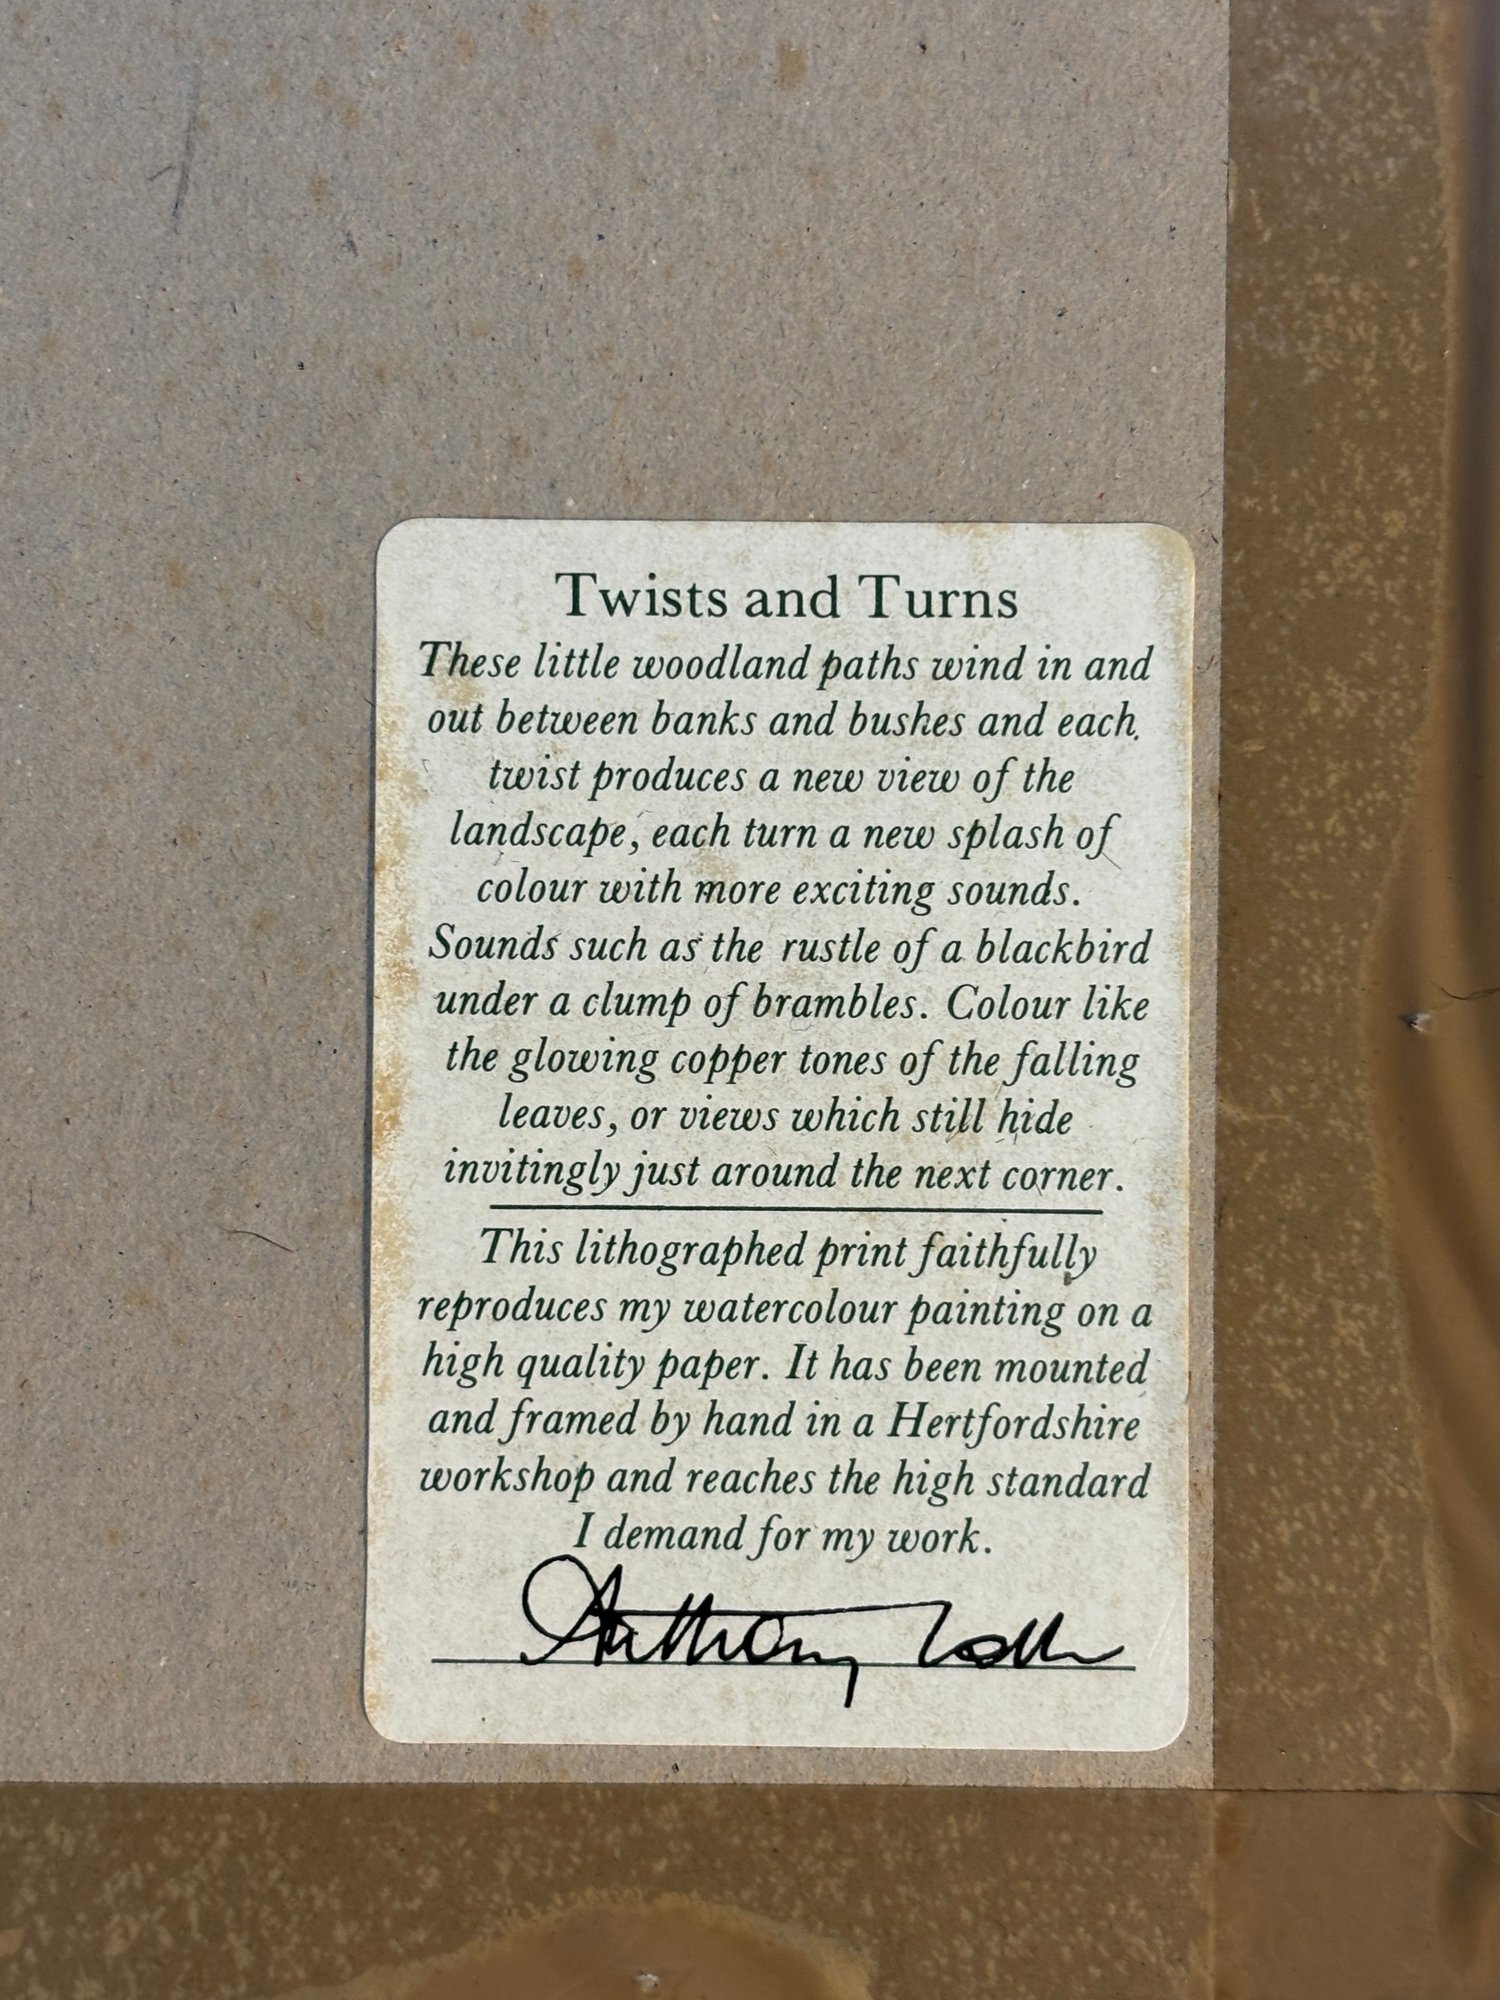 Twists and Turns
These little woodland paths wind in and
out between banks and bushes and each
twist produces a new view of the
landscape, each turn a new splash of
colour with more exciting sounds.
Sounds such as the rustle of a blackbird
under a clump of brambles. Colour like
the glowing copper tones of the falling
leaves, or views which still hide
invitingly just around the next corner.
This lithographed print faithfully
reproduces my watercolour painting on a
high quality paper. It has been mounted
and framed by hand in a Hertfordshire
workshop and reaches the high standard
I demand for my work.
Anthony